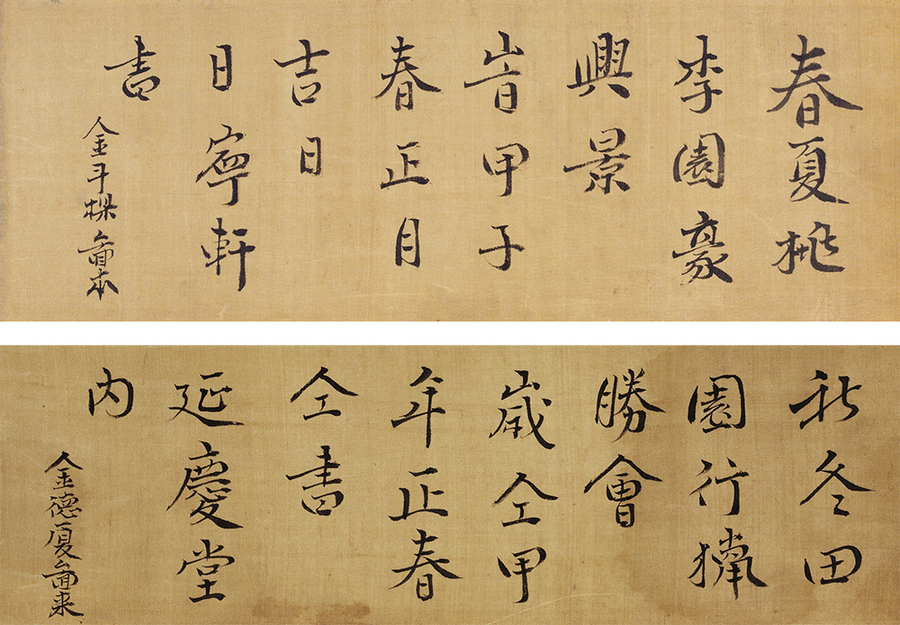 春夏桃
李園豪
興景
旹甲子
春正月
吉日
日寧軒
書
金斗樑啚本
秋冬田
園行獵
勝會
歲仝甲
年正春
仝書
延慶堂
內
金德厦啚来